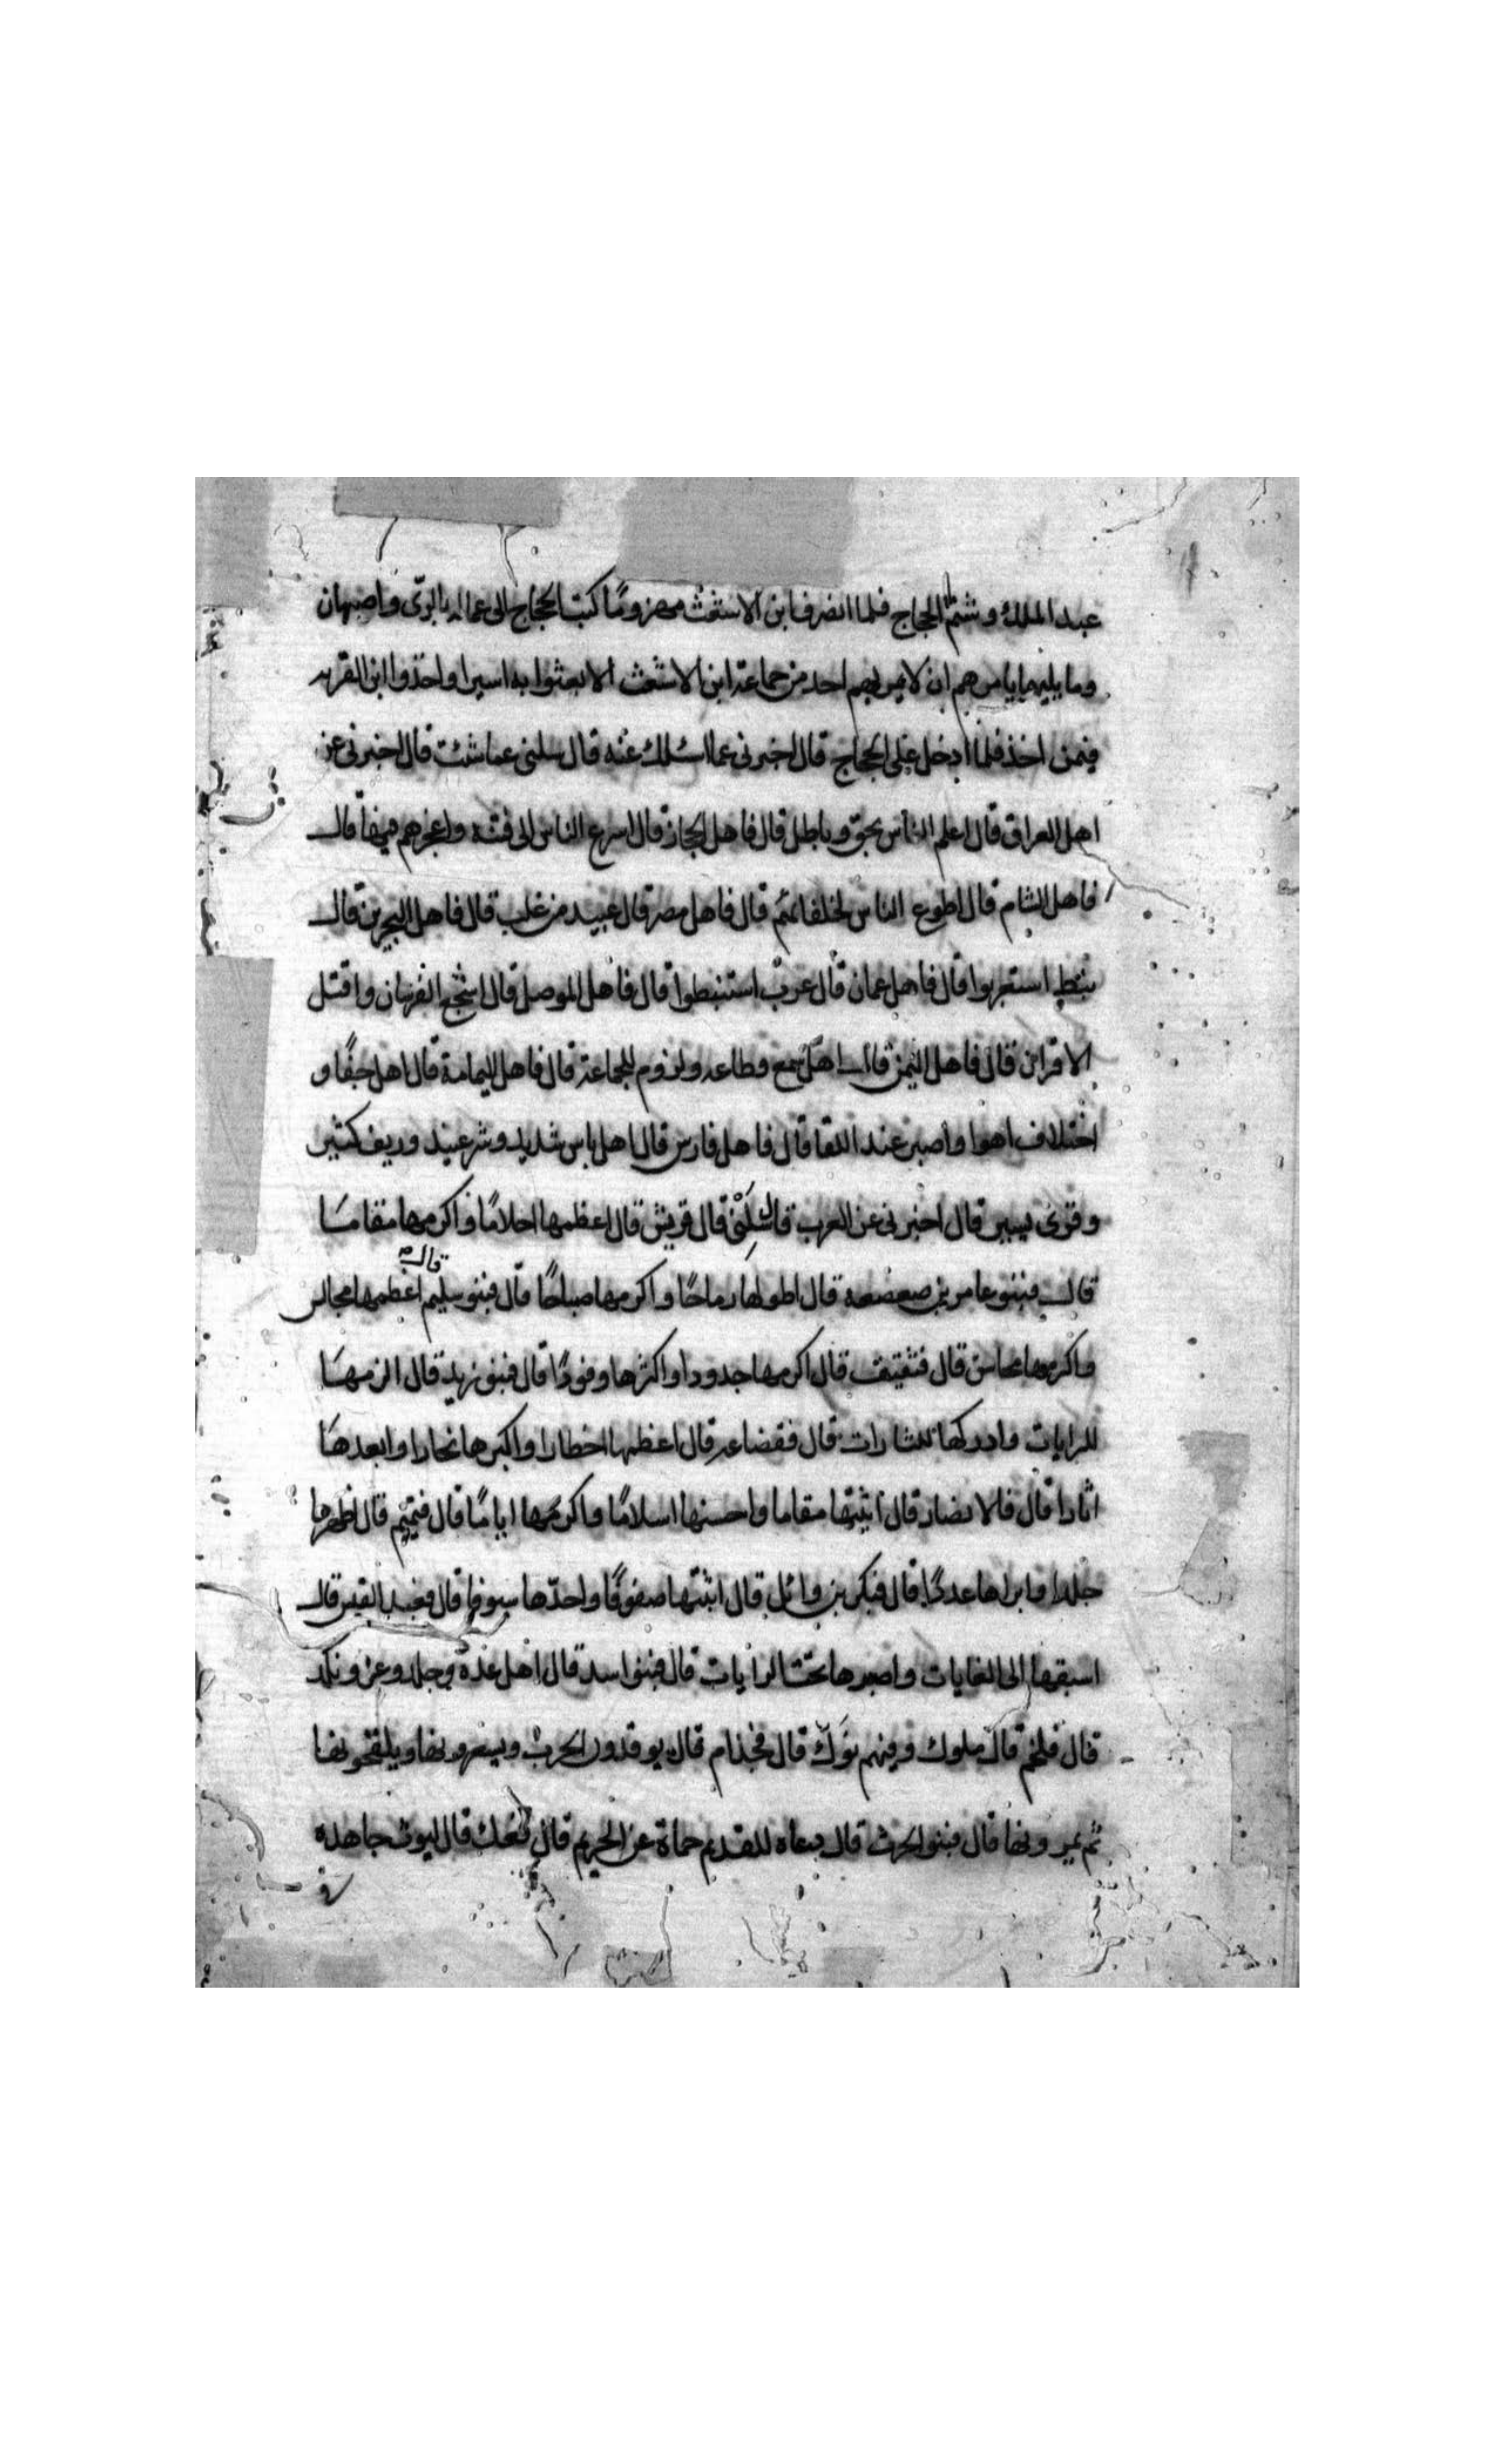 عبد الملك وشتم الحجاج فلما انصرف ابن الاشعث مهزوما كتب الحجاج الى عماله بالرى واصبهان
وما يليهما يامرهم ان لا يمر بهم احد من جماعة ابن الاشعث الا بعثوا به اسيرا واخذوا ابن القريه
فيمن اخذ فلما ادخل على الحجاج قال اخبرنى عما اسئلك عنه قال سلنى عما شئت قال اخبرنى عن
اهل العراق قال اعلم الناس بحق وباطل قال فاهل الحجاز قال اسرع الناس الى فتنه واعجزهم فيها قال
فاهل الشام قال اطوع الناس لخلفائهم قال فاهل مصر قال عبيد من غلب قال فاهل البحرين قال
نبط استعربوا قال فاهل عمان قال عرب استنبطوا قال فاهل الموصل قال اشجع الفرسان واقتل
الاقران قال فاهل اليمن قال اهل سمع وطاعه ولزوم للجماعة قال فاهل اليمامة قال اهل جفا و
اختلاف اهوا واصبر عند اللقا قال فاهل فارس قال اهل باس شديد وشر عتيد وريف كثير
وقرى يسير قال اخبرنى عن العرب قال سلنى قال قريش قال اعظمها احلامًا واكرمها مقامَا
قال فبنو عامر بن صعصعه قال اطولها رماحًا واكرمها صباحًا قال فبنو سليم قال اعظمها مجالس
واكرمها محاسن قال فثقيف قال اكرمها جدودا واكثرها وفودًا قال فبنو زبيد قال الزمهَا
للرايات وادركها للثارات قال فقضاعه قال اعظمها اخطارا واكبرها نجارا وابعدهَا
اثارا قال فالانصار قال اثبتها مقاما واحسنها اسلامًا واكرمها ايامًا قال فتميم قال اظهرها
جلدا واثراها عددًا قال فبكر بن وائل قال اثبتها صفوفًا واحدّها سيوفا قال فعبد القيس قال
اسبقها الى الغايات واصبرها تحت الرايات قال فبنو اسد قال اهل عدة وجلد وعز ونكد
قال فلخم قال ملوك وفيهم نَوك قال فجذام قال يوقدون الحرب ويسعرونها ويلقحونها
ثم يمرونها قال فبنو الحرث قال رعاه للقديم حماة عن الحريم قال فعك قال ليوث جاهده